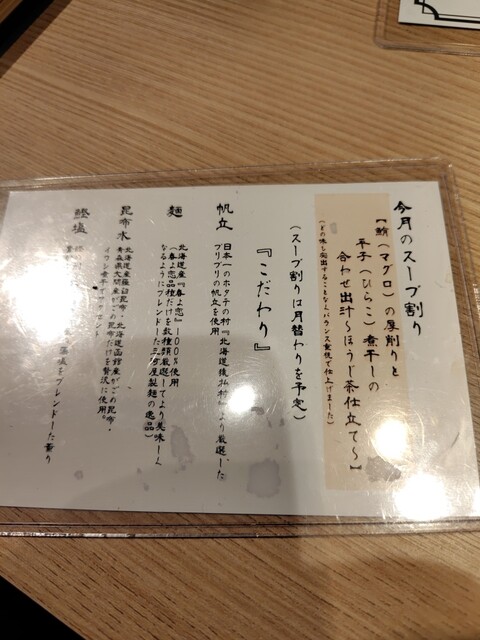 今月のスープ割り
【鮪(マグロ)の厚削りと
平子(ひらこ)煮干しの
合わせ出汁〜ほうじ茶仕立て〜】
(スープ割りは月替わりを予定)
『こだわり』
帆立
日本一のホタテの村『北海道猿払村』より厳選した
プリプリの帆立を使用
麺
北海道産『春よ恋』100%使用
(春よ恋品種だけを数種類厳選してより美味しく
なるようにブレンドした三河屋製麺の逸品)
昆布水
北海道産羅臼昆布・北海道函館産がごめ昆布・
青森県大間産がごめ昆布だけを贅沢に使用。
鰹塩
藻塩をブレンドした薫り